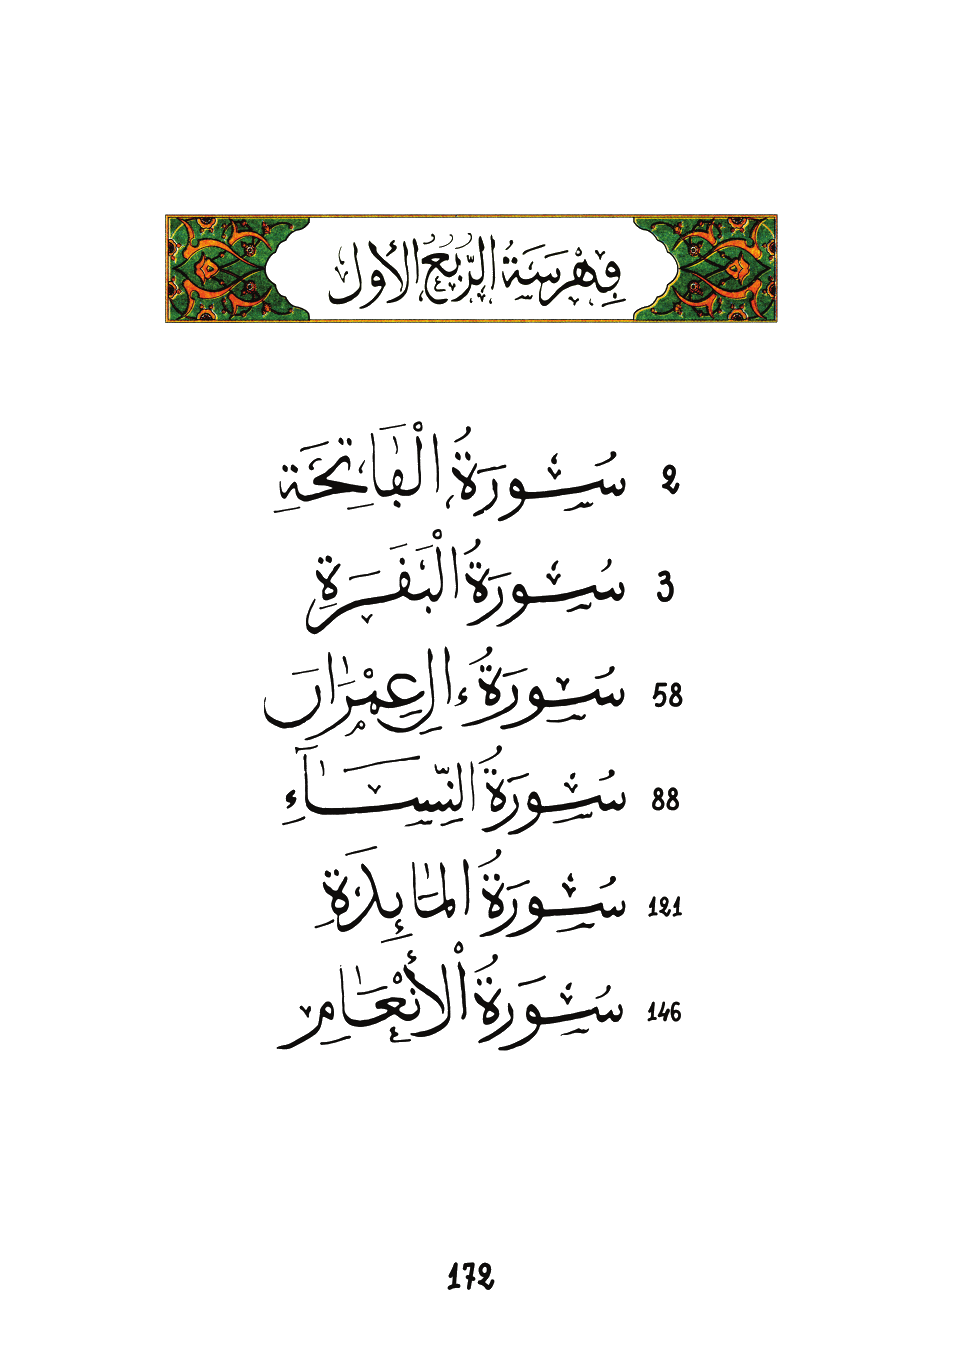 فِهْرِسَةُ الرُّبُعِ الأول
2 سُورَةُ الْفَاتِحَةِ
3 سُورَةُ الْبَقَرَةِ
58 سُورَةُ ءَالِ عِمْرَانَ
88 سُورَةُ النِّسَآءِ
121 سُورَةُ الْمَائِدَةِ
146 سُورَةُ الْأَنْعَامِ
172